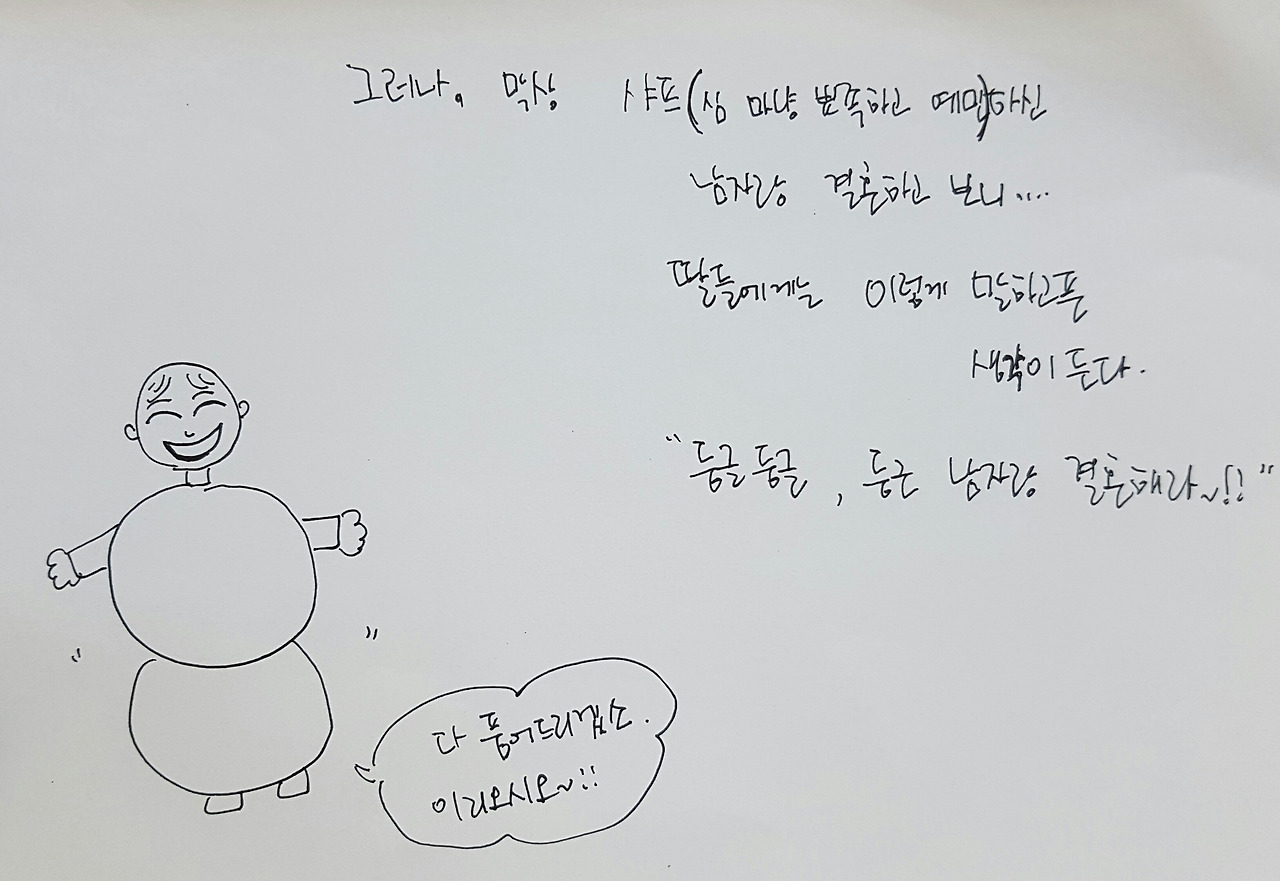 그러나, 막상 샤프(심 마냥 뾰족하고 예민)하신
남자랑 결혼하고 보니....
딸들에게는 이렇게 말하고픈
생각이 든다.
"둥글둥글, 둥근 남자랑 결혼해라~!!"
다 품어드리겠소.
이리오시오~!!